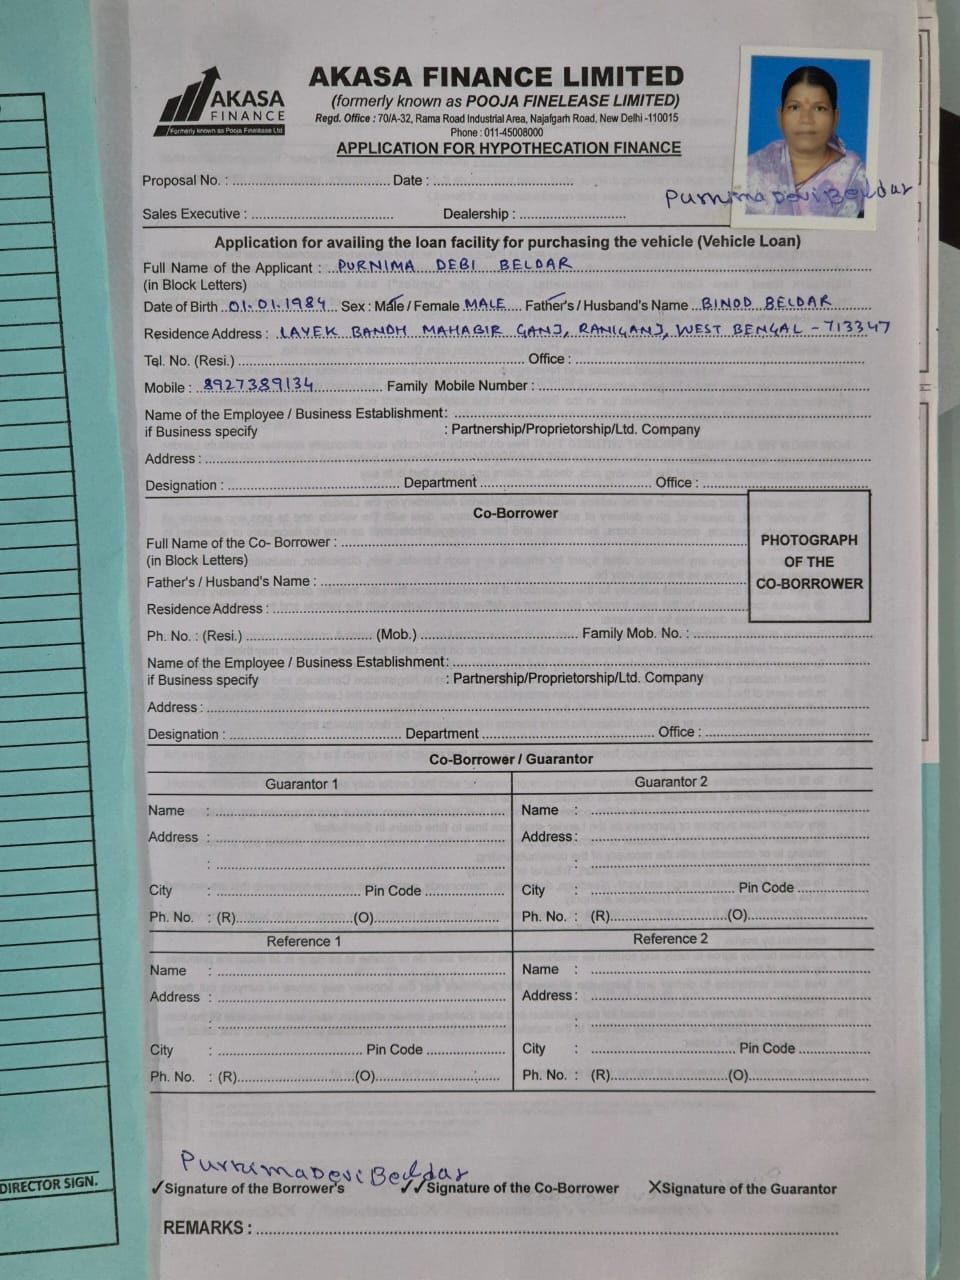 AKASA
FINANCE
Formerly known as Pooja Finelease Ltd
AKASA FINANCE LIMITED
(formerly known as POOJA FINELEASE LIMITED)
Regd. Office : 70/A-32, Rama Road Industrial Area, Najafgarh Road, New Delhi -110015
Phone : 011-45008000
APPLICATION FOR HYPOTHECATION FINANCE
Purnima Devi Beldar
Proposal No. : Date :
Sales Executive : Dealership :
Application for availing the loan facility for purchasing the vehicle (Vehicle Loan)
Full Name of the Applicant : PURNIMA DEBI BELDAR
(in Block Letters)
Date of Birth 01.01.1984 Sex : Male / Female MALE Father's / Husband's Name BINOD BELDAR
Residence Address : LAYEK BANDH MAHABIR GANJ, RANIGANJ, WEST BENGAL - 713347
Tel. No. (Resi.) Office :
Mobile : 8927389134 Family Mobile Number :
Name of the Employee / Business Establishment:
if Business specify : Partnership/Proprietorship/Ltd. Company
Address :
Designation : Department Office :
Co-Borrower
PHOTOGRAPH
OF THE
CO-BORROWER
Full Name of the Co- Borrower :
(in Block Letters)
Father's / Husband's Name :
Residence Address :
Ph. No. : (Resi.) (Mob.) Family Mob. No. :
Name of the Employee / Business Establishment:
if Business specify : Partnership/Proprietorship/Ltd. Company
Address :
Designation : Department Office :
Co-Borrower / Guarantor
Guarantor 1 Guarantor 2
Name : Name :
Address : Address :
: :
City : Pin Code City : Pin Code
Ph. No. : (R) (O) Ph. No. : (R) (O)
Reference 1 Reference 2
Name : Name :
Address : Address :
: :
City : Pin Code City : Pin Code
Ph. No. : (R) (O) Ph. No. : (R) (O)
Purnima Devi Beldar
✓Signature of the Borrower's ✓✓Signature of the Co-Borrower XSignature of the Guarantor
REMARKS :
DIRECTOR SIGN.